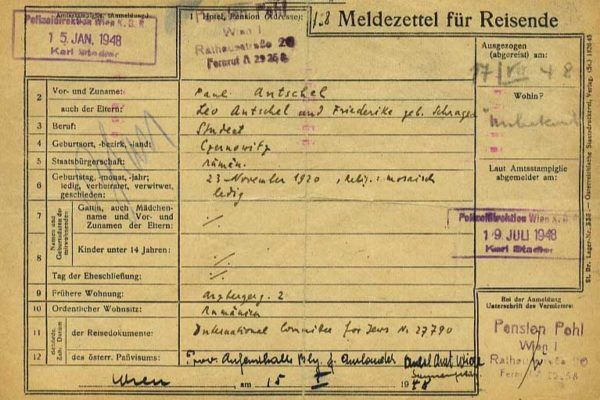 Amtsstampiglie (Anmeldung):
Polizeidirektion Wien K.B.
15. JAN. 1948
Karl Stadler
1 Hotel, Pension (Adresse):
Pohl
Wien I
Rathausstraße 20
Fernruf A 23 2 58
Meldezettel für Reisende
Ausgezogen
(abgereist) am:
17 VII 48
Wohin?
"Unbekannt"
Laut Amtsstampiglie
abgemeldet am:
Polizeidirektion Wien K.B.
19. JULI 1948
Karl Stadler
2 Vor- und Zuname: Paul Antschel
auch der Eltern: Leo Antschel und Friederike geb. Schrager
3 Beruf: Student
4 Geburtsort, -bezirk, -land: Czernowitz
5 Staatsbürgerschaft: Rumän.
6 Geburtstag, -monat, -jahr; 23. November 1920, Relig.: mosaisch
ledig, verheiratet, verwitwet, ledig
geschieden:
7 Gattin, auch Mädchen-
name und Vor- und
Zunamen der Eltern: ./.
8 Kinder unter 14 Jahren: ./.
Namen und Geburtsdaten der mitwohnenden
Tag der Eheschließung: ./.
9 Frühere Wohnung: Arzbergerg. 2
10 Ordentlicher Wohnsitz: Rumänien
11 der Reisedokumente: International Committee for Jews Nr. 27790
12 des österr. Paßvisums: Prov. Aufenthalts
Wien am 15 I 1948
Bei der Anmeldung
Unterschrift des Vermieters:
Pension Pohl
Wien I
Rathausstraße 20
St. Dr. Lager-Nr.
Österreichische Staatsdruckerei, Verlag.